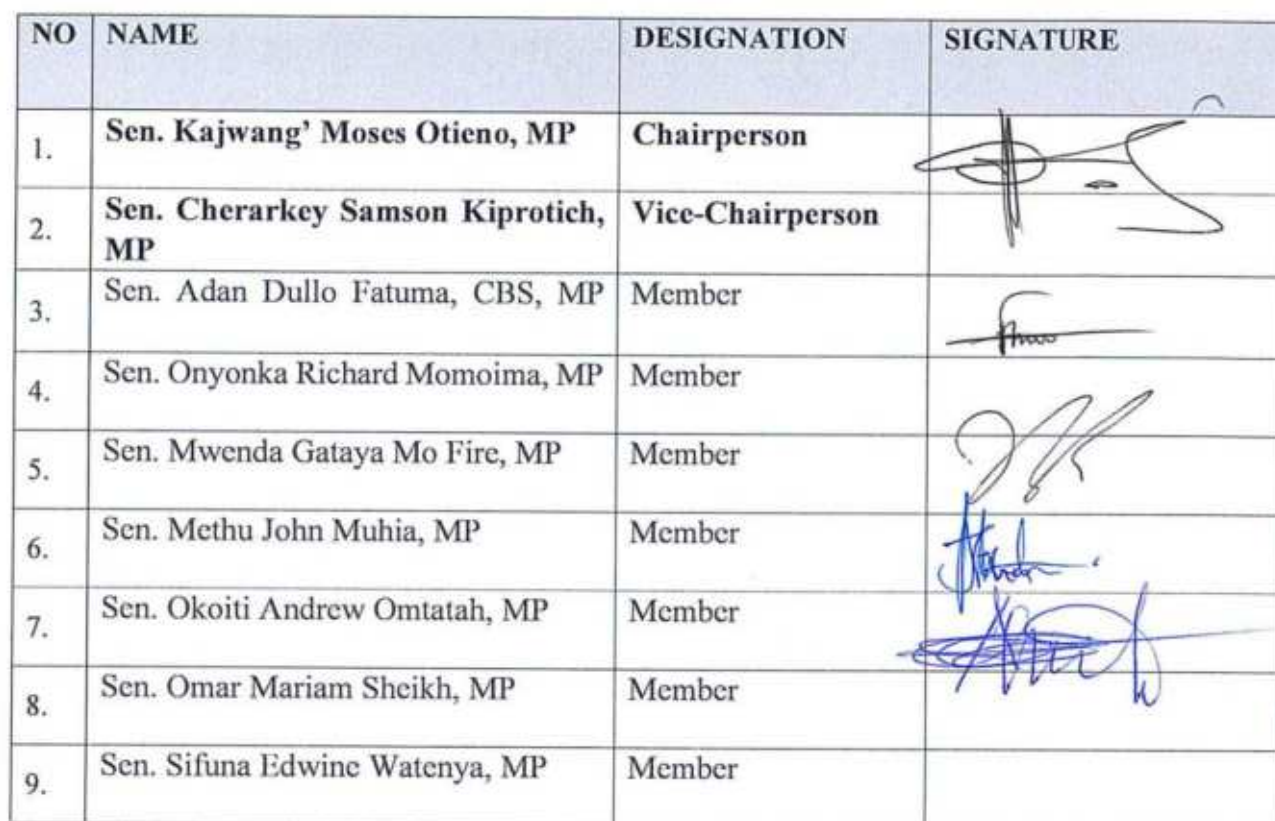 NO NAME DESIGNATION SIGNATURE
1. Sen. Kajwang’ Moses Otieno, MP Chairperson
2. Sen. Cherarkey Samson Kiprotich, Vice-Chairperson
MP
3. Sen. Adan Dullo Fatuma, CBS, MP Member
4. Sen. Onyonka Richard Momoima, MP Member
5. Sen. Mwenda Gataya Mo Fire, MP Member
6. Sen. Methu John Muhia, MP Member
7. Sen. Okoiti Andrew Omtatah, MP Member
8. Sen. Omar Mariam Sheikh, MP Member
9. Sen. Sifuna Edwine Watenya, MP Member